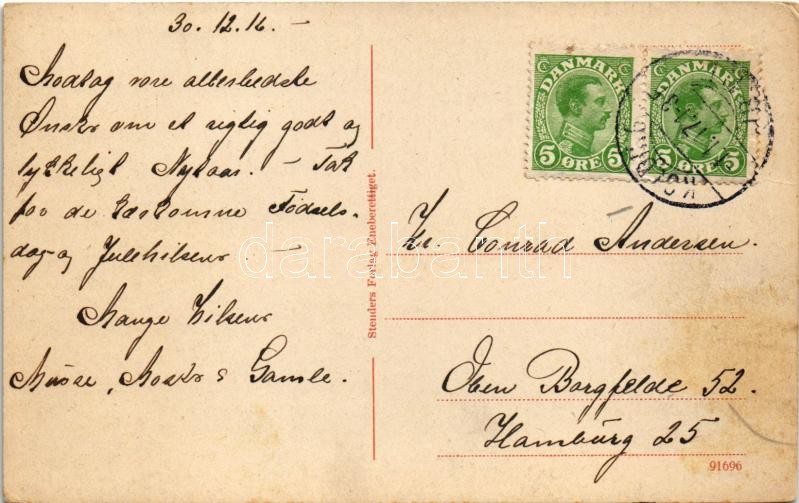 30.12.16.
Modtag vore allerbedste
Ønsker om et rigtig godt og
lykkeligt Nytaar. – Tak
for de tilkomne Fødsels-
dag- og Julehilsener –
Mange Hilsner
Musse, Moster & Gamle.
Stenders Forlag Eneberettiget.
DANMARK
5 ØRE 5
DANMARK
5 ØRE 5
KJØBENHAVN
Hr. Conrad Andersen.
Oben Borgfelde 52.
Hamburg 25
91696
darabanth